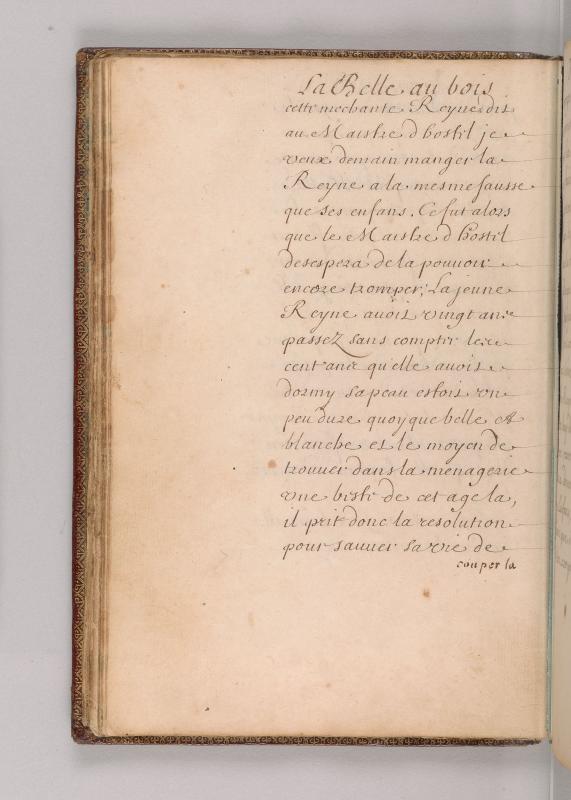 La Belle au bois
cette mechante Reyne dit
au Maistre d hostil je
veux demain manger la
Reyne a la mesme sausse
que ses enfans. Ce fut alors
que le Maistre d hostil
desespera de la pouvoir
encore tromper; La jeune
Reyne avoit vingt ans
passez sans compter les
cent ans qu'elle avoit
dormy sa peau estoit un
peu dure quoyque belle et
blanche et le moyen de
trouver dans la menagerie
une beste de cet age la,
il prit donc la resolution
pour sauuer sa vie de
couper la